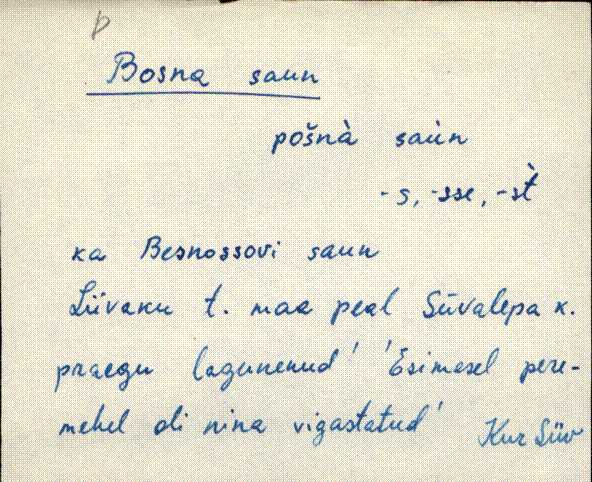 p
Bosna saun
pošnà saùn
-s, -sse, -st̀
ka Besnossovi saun
Liivaku t. maa peal Süvalepa k.
praegu lagunenud' 'Esimesel pere-
mehel oli nina vigastatud'
Kur Süv